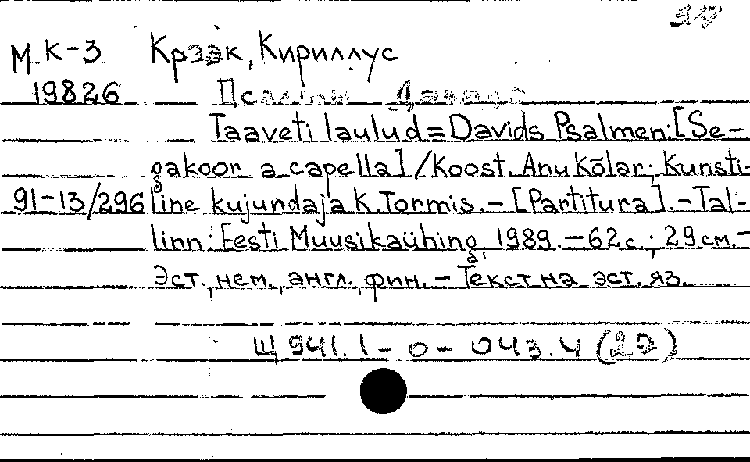 М К-3 Крээк, Кириллус
19826 Псалмы Давида
Taaveti laulud = Davids Psalmen: [Se-
gakoor a capella] / Koost. Anu Kõlar; Kunsti-
91-13/296 line kujundaja K. Tormis. - [Partitura]. - Tal-
linn: Eesti Muusikaühing, 1989. - 62 с.; 29 см. -
Эст., нем., англ., фин. - Текст на эст. яз.
Щ 941.1 - 0 - 043.4 (22)